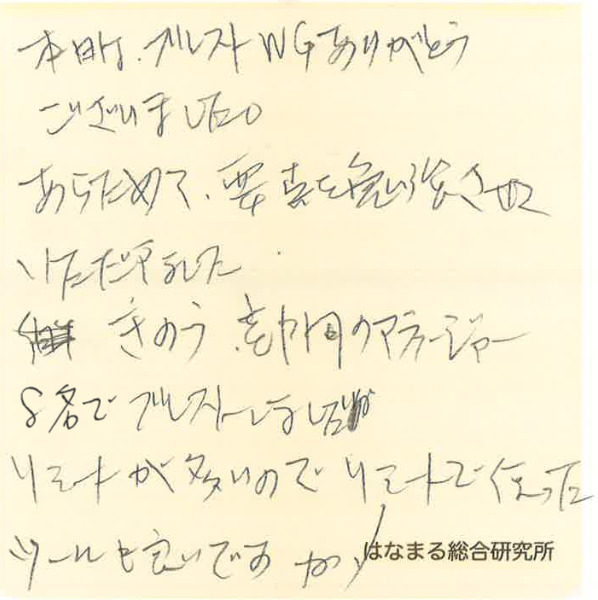 本日は、ブレストWGありがとう
ございました。
あらためて、要点を勉強させて
いただきました
きのう 幹のマネージャー
8名でブレストしました
リモートが多いのでリモートで使った
ツールも良いですが
はなまる総合研究所